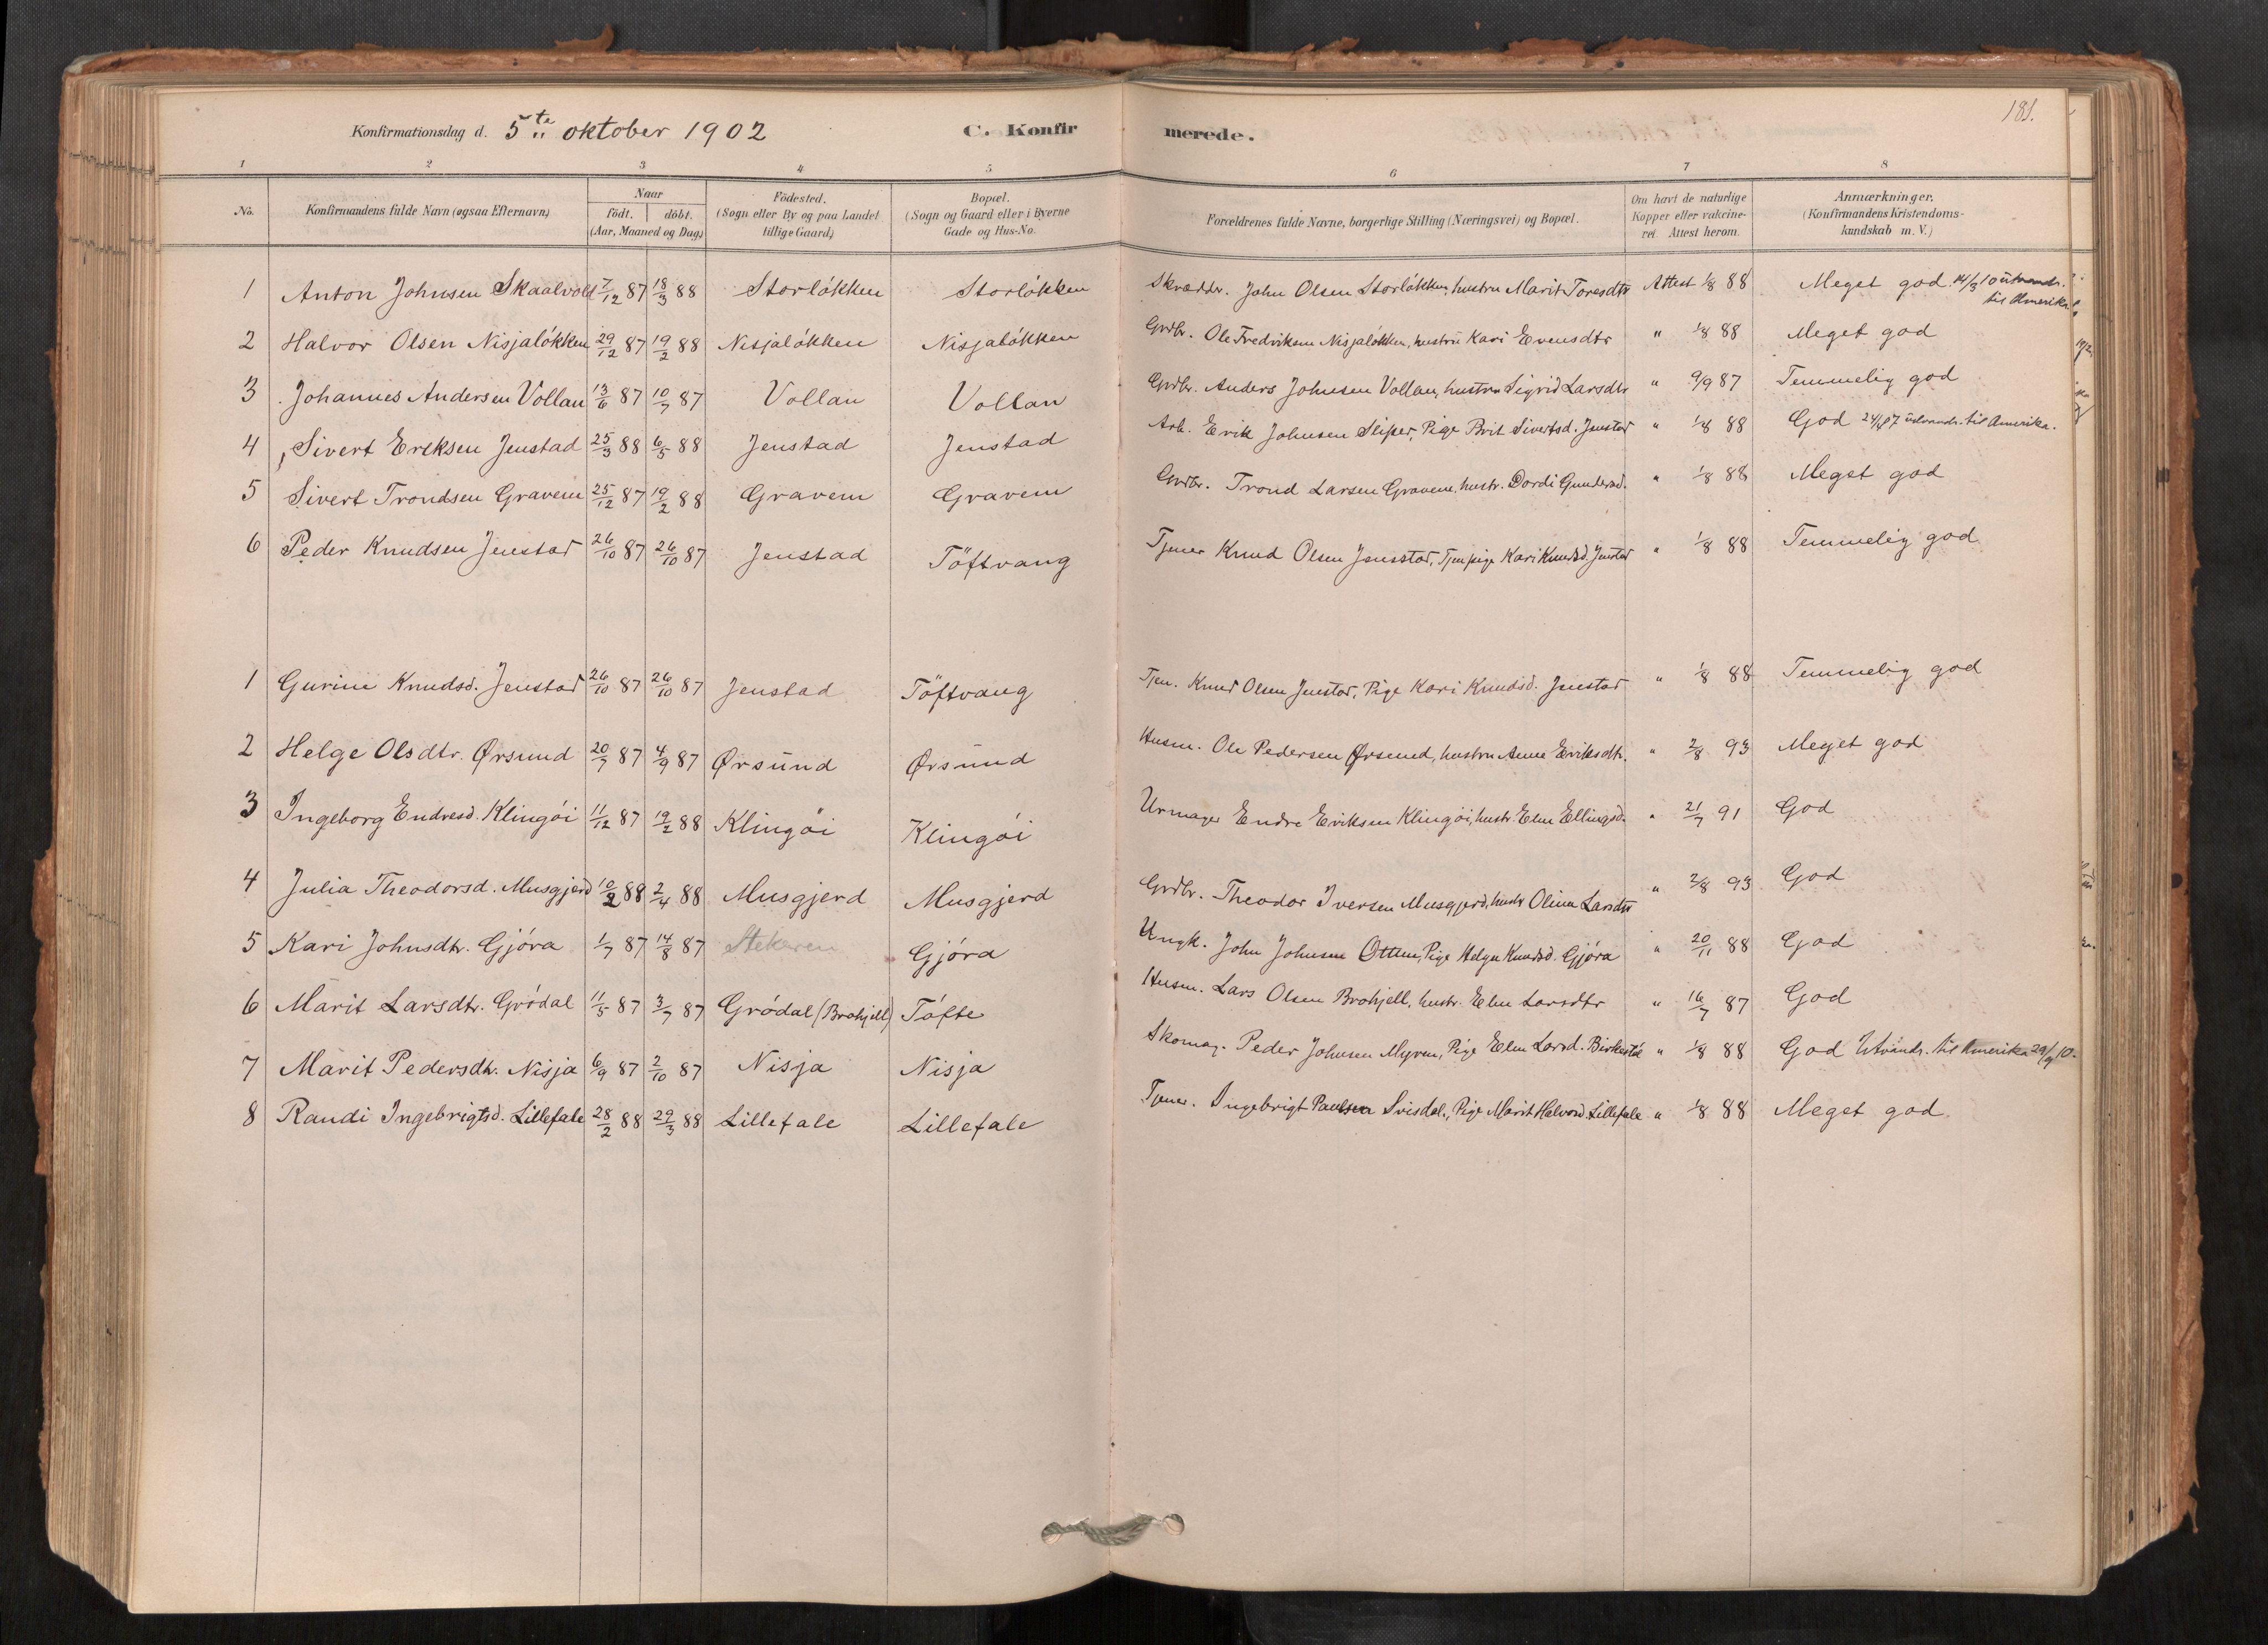 181.
Konfirmationsdag d. 5te oktober 1902 C. Konfirmerede.
1 2 3 4 5 6 7 8
No. Konfirmandens fulde Navn (ogsaa Efternavn) Naar födt. döbt. (Aar, Maaned og Dag.) Födested. (Sogn eller By og paa Landet tillige Gaard.) Bopæl. (Sogn og Gaard eller i Byerne Gade og Hus-No. Forældrenes fulde Navne, borgerlige Stilling (Næringsvei) og Bopæl. Om havt de naturlige Kopper eller vakcineret. Attest herom. Anmærkninger. (Konfirmandens Kristendomskundskab m. V.)
1 Anton Johnsen Skaalvold 7/12 87 18/3 88 Storløkken Storløkken Skrædder. John Olsen Storløkken, hustru Marit Toresdtr Attest 1/8 88 Meget god 14/3 10 utvandr. til Amerika
2 Halvor Olsen Nisjaløkken 29/12 87 19/2 88 Nisjaløkken Nisjaløkken Grdbr. Ole Fredriksen Nisjaløkken, hustru Kari Evensdtr " 1/8 88 Meget god
3 Johannes Andersen Vollan 13/6 87 10/7 87 Vollan Vollan Grdbr. Anders Johnsen Vollan, hustru Sigrid Larsdtr " 9/9 87 Temmelig god
4 Sivert Eriksen Jenstad 25/3 88 6/5 88 Jenstad Jenstad Arb. Erik Johnsen Sliper, Pige Brit Sivertsd. Jenstad " 1/8 88 God utvandr. til Amerika.
5 Sivert Trondsen Gravem 25/12 87 19/2 88 Gravem Gravem Grdbr. Trond Larsen Gravem, hustr. Dordi Gundersd. " 1/8 88 Meget god
6 Peder Knudsen Jenstad 26/10 87 26/10 87 Jenstad Töftvang Tjener Knud Olsen Jenstad, Tjen.pige Kari Knudsd. Jenstad " 1/8 88 Temmelig god
1 Gurine Knudsd. Jenstad 26/10 87 26/10 87 Jenstad Töftvang Tjen. Knud Olsen Jenstad, Pige Kari Knudsd. Jenstad " 1/8 88 Temmelig god
2 Helge Olsdtr. Ørsund 20/7 87 4/9 87 Ørsund Ørsund Husm. Ole Pedersen Ørsund, hustru Anne Eriksdtr. " 2/8 93 Meget god
3 Ingeborg Endresd. Klingøi 11/12 87 19/2 88 Klingøi Klingøi Urmager Endre Eriksen Klingøi, hustr. Elen Ellingsd. " 21/7 91 God
4 Julia Theodorsd. Musgjerd 10/2 88 2/4 88 Musgjerd Musgjerd Grdbr. Theodor Iversen Musgjerd, hustr Olina Larsdtr " 2/8 93 God
5 Kari Johnsdtr. Gjøra 1/7 87 14/8 87 Stekeren Gjøra Ungk. John Johnsen Ottem, Pige Helga Knudsd. Gjøra " 20/11 88 God
6 Marit Larsdtr. Grødal 11/5 87 3/7 87 Grødal (Brohjell) Tøfte Husm. Lars Olsen Brohjell, hustr. Elen Larsdtr " 16/7 87 God
7 Marit Pedersdtr. Nisja 6/9 87 2/10 87 Nisja Nisja Skomag. Peder Johnsen Myren, Pige Elen Larsd. " 1/8 88 God Utvandr. til Amerika 29/9 10.
8 Randi Ingebrigtsd. Lillefale 28/2 88 29/3 88 Lillefale Lillefale Tjener. Ingebrigt Paulsen Svisdal, Pige Marit Halvorsd. Lillefale " 1/8 88 Meget god